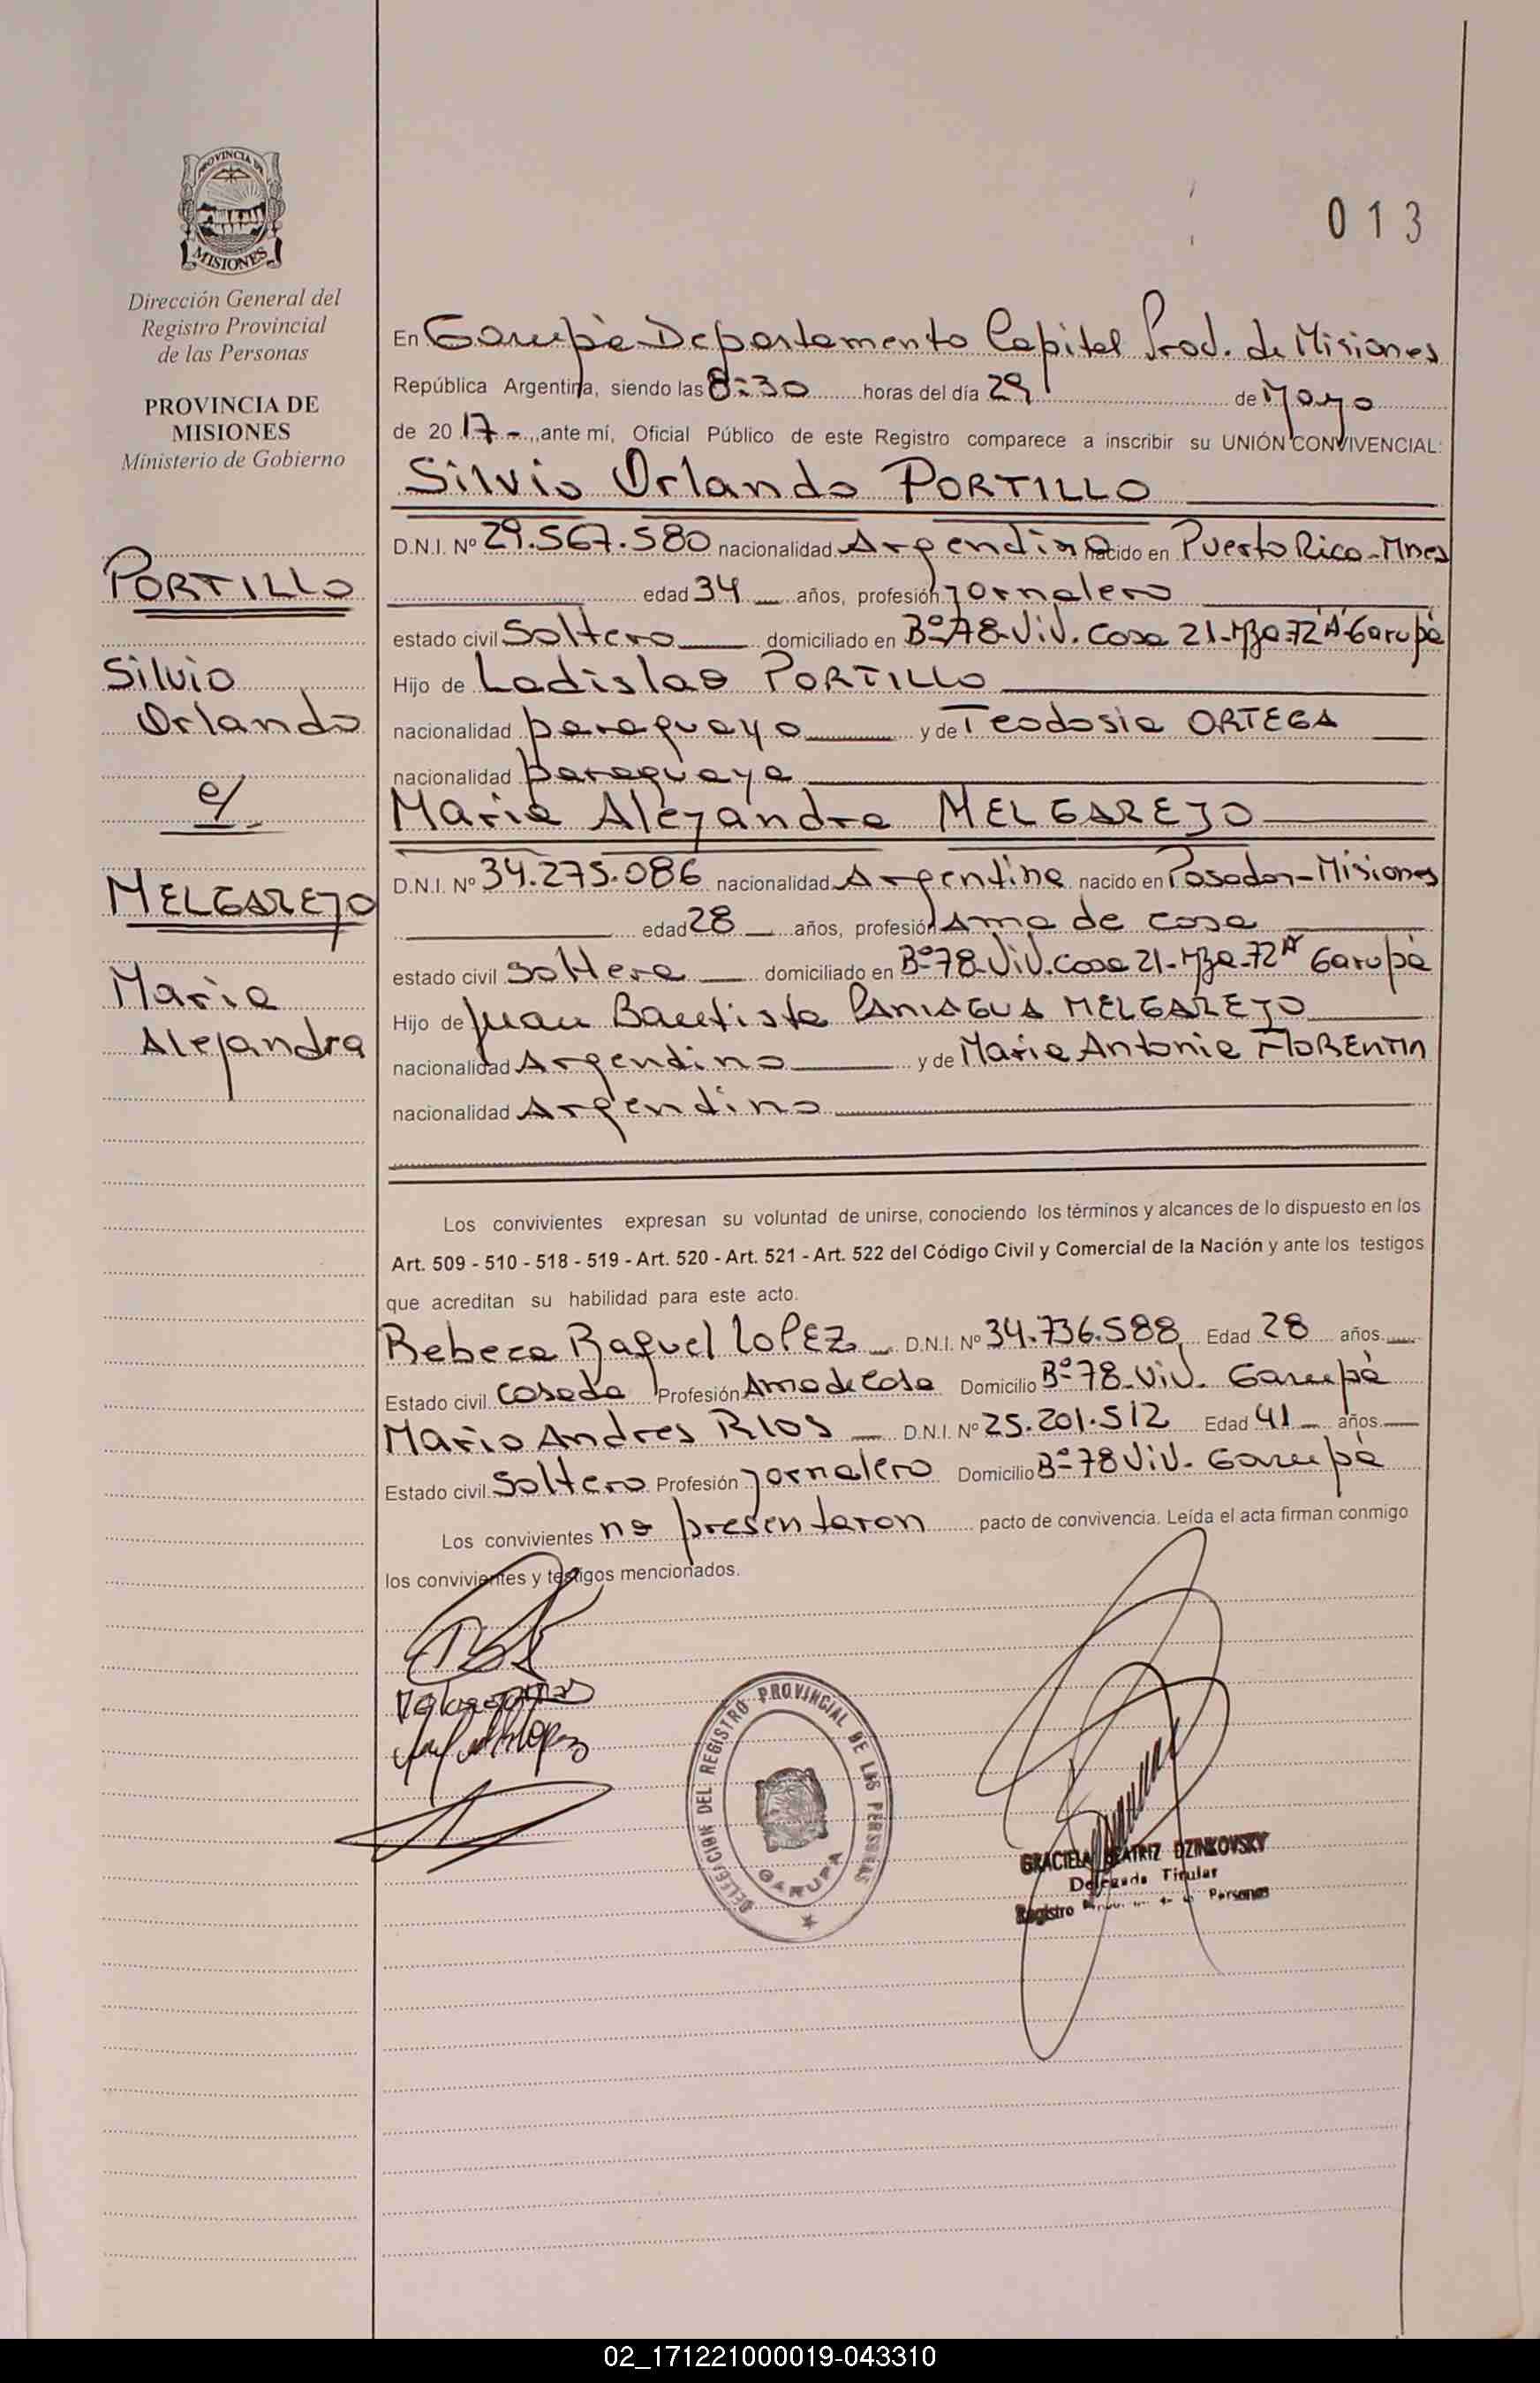 PROVINCIA DE
MISIONES
Dirección General del
Registro Provincial
de las Personas
PROVINCIA DE
MISIONES
Ministerio de Gobierno
PORTILLO
Silvio
Orlando
c/
MELGAREJO
Maria
Alejandra
013
En Garupá Departamento Capital Prov. de Misiones
República Argentina, siendo las 8:30 horas del día 29 de Mayo
de 2017-, ante mí, Oficial Público de este Registro comparece a inscribir su UNIÓN CONVIVENCIAL:
Silvio Orlando PORTILLO
D.N.I. Nº 29.567.580 nacionalidad Argentino nacido en Puerto Rico-Mnes
edad 34 años, profesión jornalero
estado civil Soltero domiciliado en Bº 78-Viv. Casa 21-Mza 72"A"-Garupá
Hijo de Ladislao PORTILLO
nacionalidad paraguayo y de Teodosia ORTEGA
nacionalidad paraguaya
Maria Alejandra MELGAREJO
D.N.I. Nº 34.275.086 nacionalidad Argentina nacido en Posadas-Misiones
edad 28 años, profesión Ama de casa
estado civil soltera domiciliado en Bº 78-Viv. Casa 21-Mza-72"A" Garupá
Hijo de Juan Bautista PANIAGUA MELGAREJO
nacionalidad Argentino y de Maria Antonia FLORENTIN
nacionalidad Argentino
Los convivientes expresan su voluntad de unirse, conociendo los términos y alcances de lo dispuesto en los
Art. 509 - 510 - 518 - 519 - Art. 520 - Art. 521 - Art. 522 del Código Civil y Comercial de la Nación y ante los testigos
que acreditan su habilidad para este acto.
Rebeca Raquel LOPEZ D.N.I. Nº 34.736.588 Edad 28 años
Estado civil Casada Profesión Ama de Casa Domicilio Bº 78-Viv. Garupá
Mario Andres RIOS D.N.I. Nº 25.201.512 Edad 41 años
Estado civil Soltero Profesión jornalero Domicilio Bº 78 Viv. Garupá
Los convivientes no presentaron pacto de convivencia. Leída el acta firman conmigo
los convivientes y testigos mencionados.
DELEGACION DEL REGISTRO PROVINCIAL DE LAS PERSONAS
GARUPA
GRACIELA BEATRIZ DZINKOVSKY
Delegada Titular
Registro Personas
02_171221000019-043310